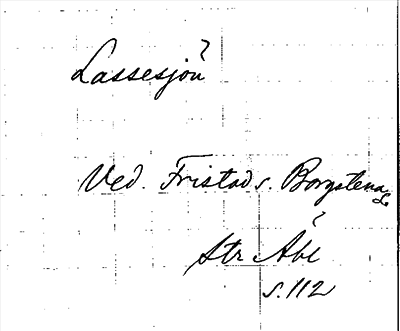 Lassesjön?
Ved. Fristad s. Borgstena
Str Åbl
s. 112